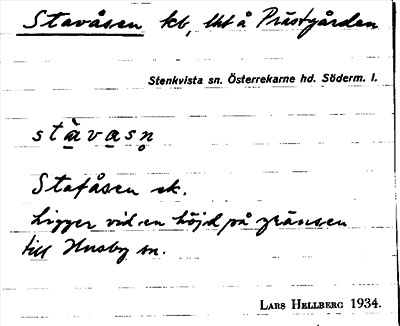 Stavåsen kt, lht å Prästgården
Stenkvista sn. Österrekarne hd. Söderm. l.
stàvasn̥
Stafåsen ek.
Ligger vid en höjd på gränsen
till Husby sn.
Lars Hellberg 1934.